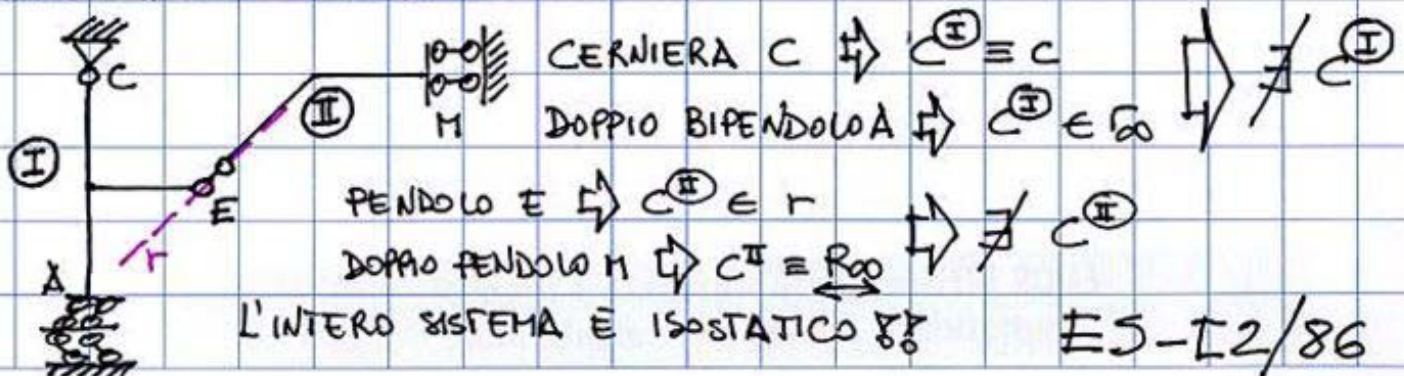 C
CERNIERA C ⇨ C^Ⓘ ≡ C
M
DOPPIO BIPENDOLO A ⇨ C^Ⓘ ∈ r∞ ⇨ ∄ C^Ⓘ
Ⓘ
Ⓘⓘ
E
PENDOLO E ⇨ C^Ⓘⓘ ∈ r
r
DOPPIO PENDOLO M ⇨ C^II ≡ R∞ ⇨ ∄ C^Ⓘⓘ
A
L'INTERO SISTEMA E ISOSTATICO !!
ES-I2/86